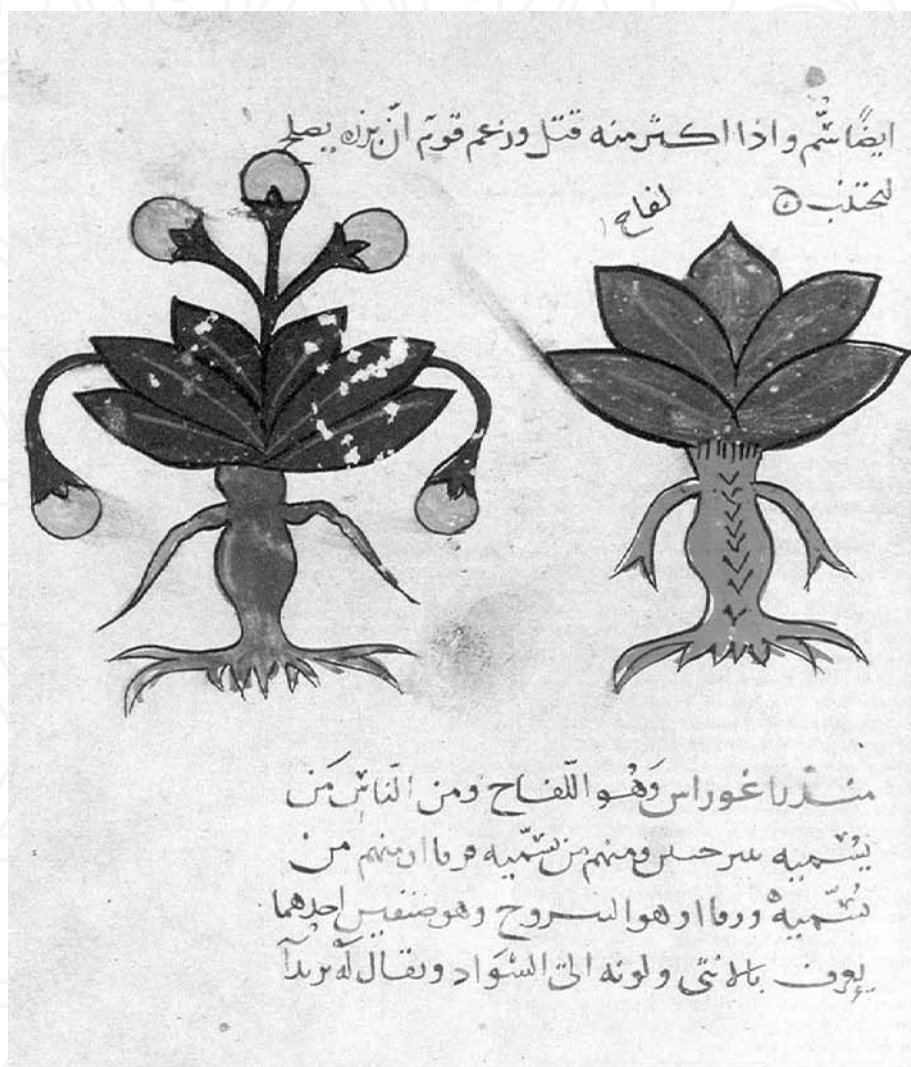 ايضًا سُمّ و اذا اكثر منه قتل وزعم قوم انّ بزره يصلح
لفاح
مندراغوراس وَهُو اللّفاح ومن النّاس مَن
يسُميه ومنهم من يسَمّيه ومنهم من
يُسَمّيه وهو اليبروح وهو صنفين احدهما
يعرف بالانثى و لونه الى السَّواد ويقال لَه